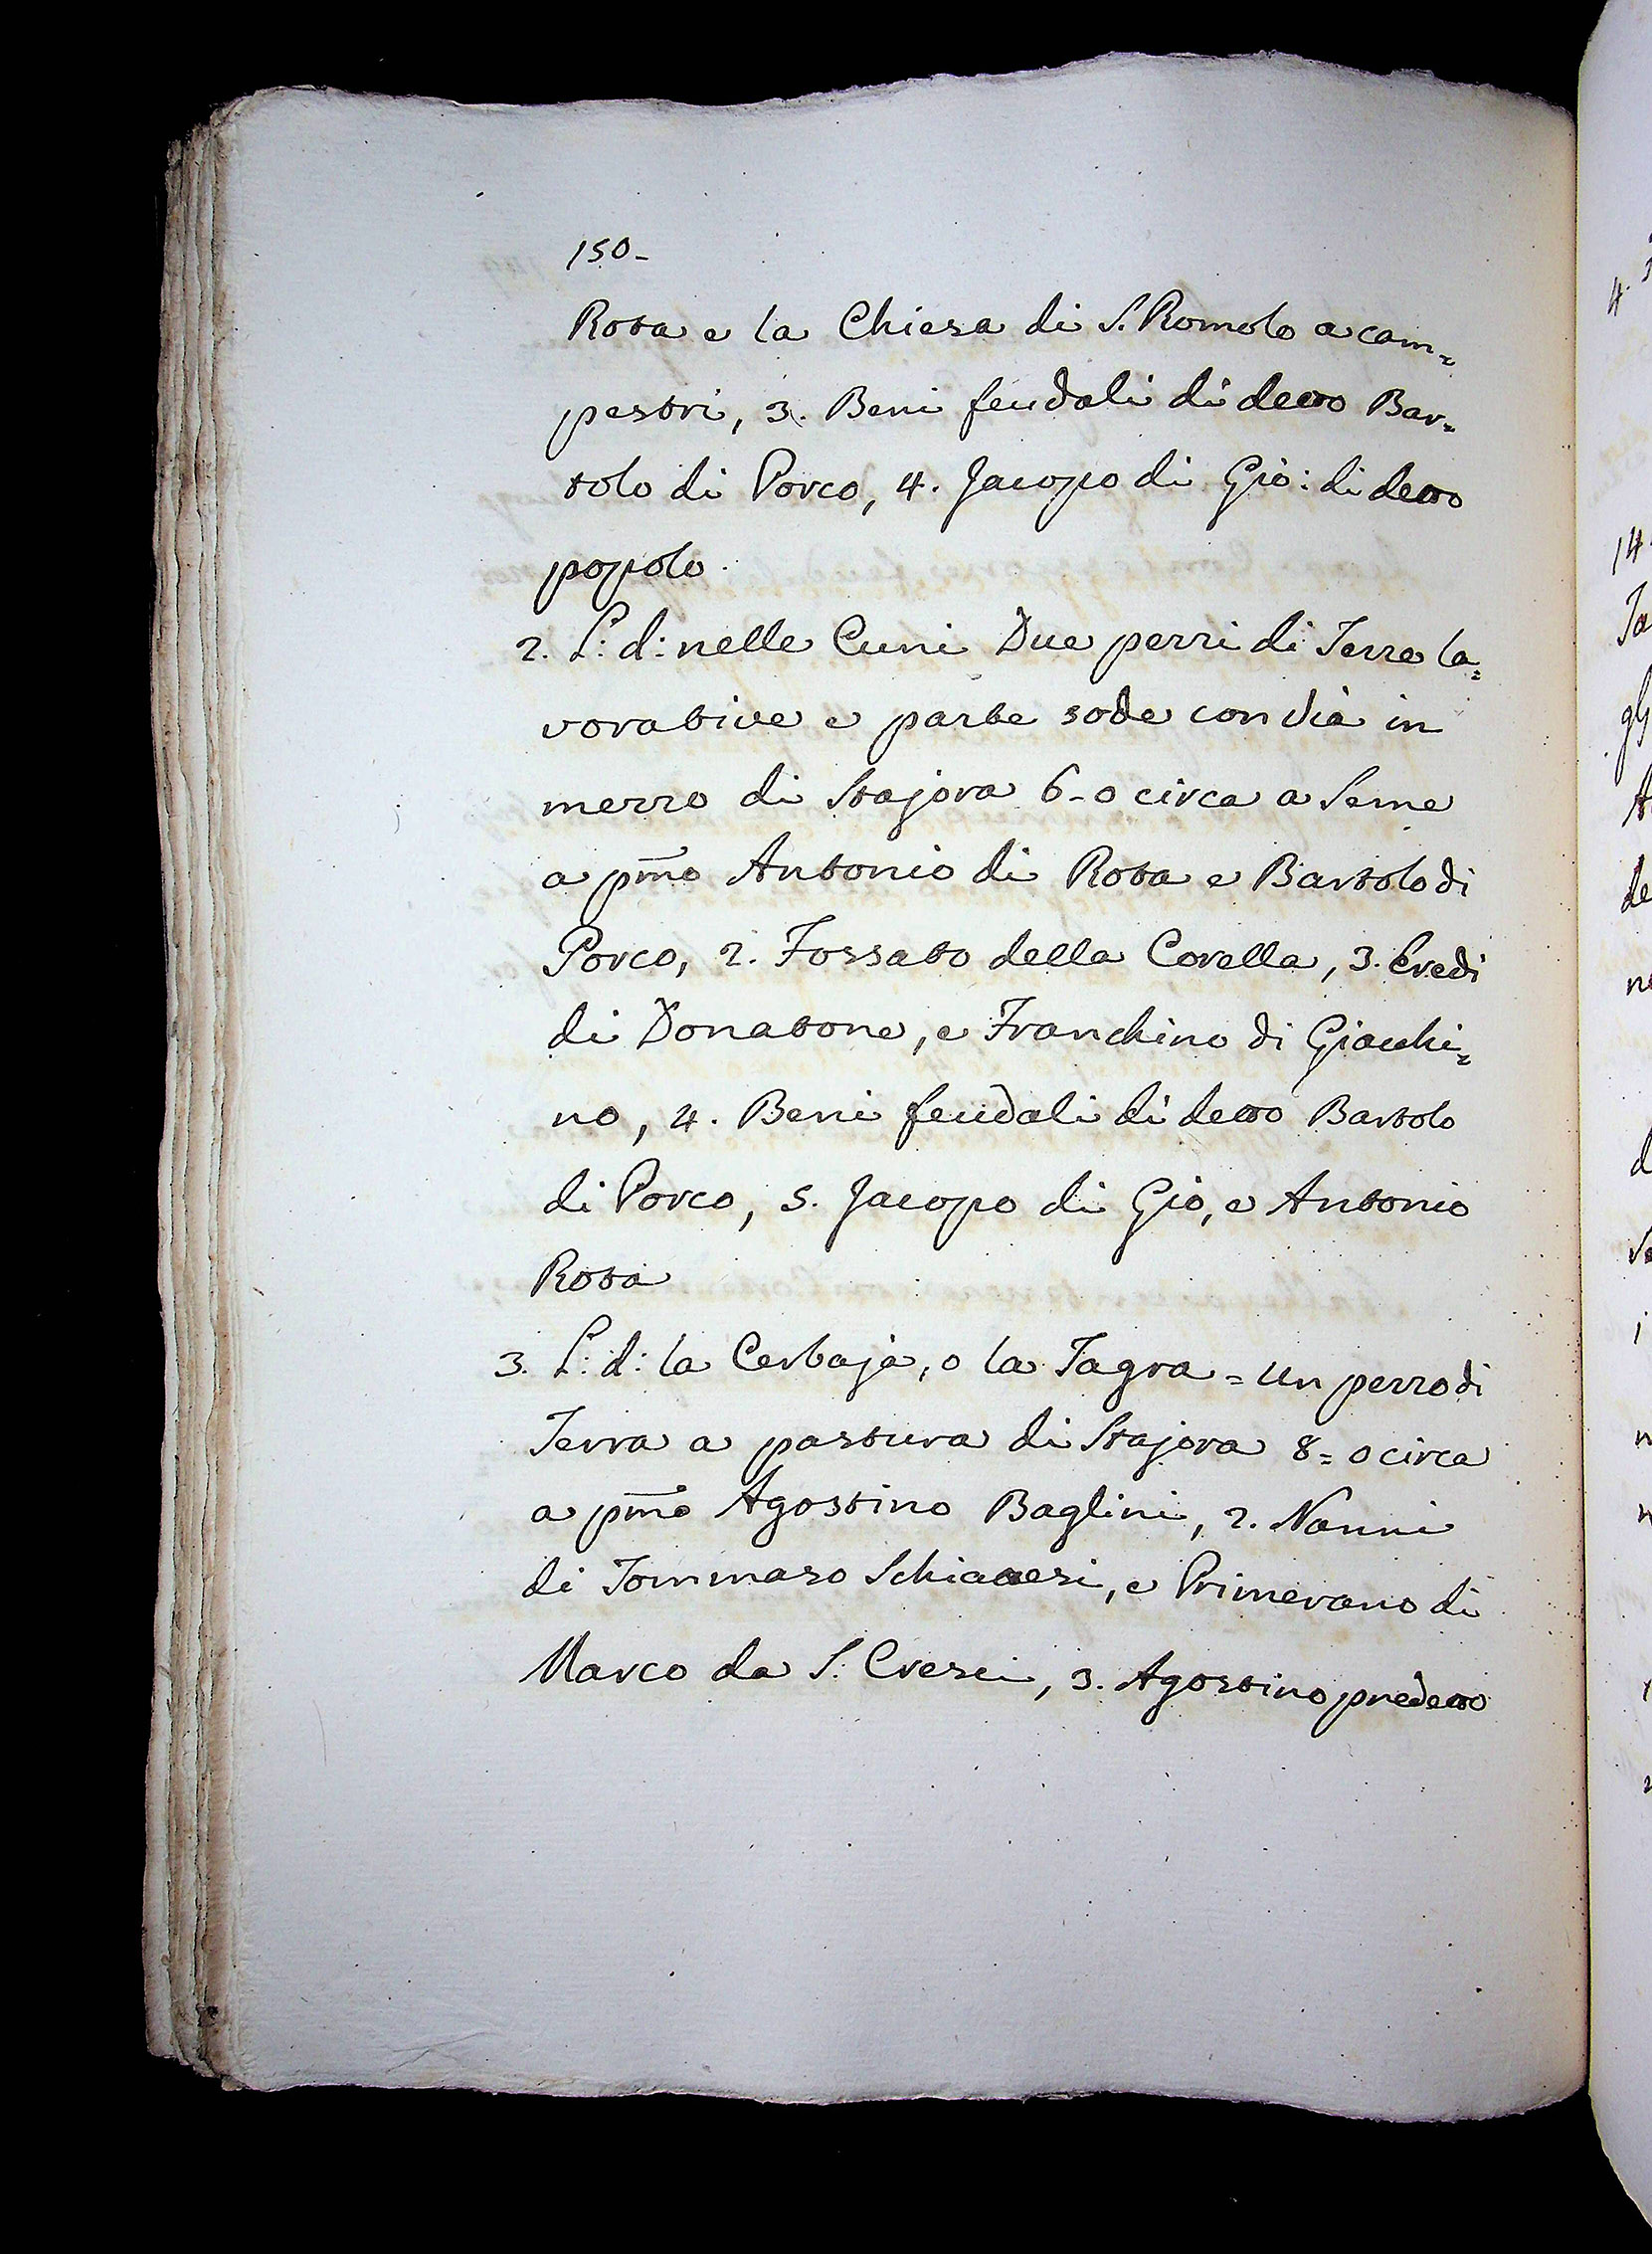 150-
Rota e la Chiesa di S. Romolo a cam=
pestri, 3. Beni feudali di detto Bar=
tolo di Porco, 4. Jacopo di Gio: di detto
popolo.
2. L: d: nelle Cuni Due pezzi di Terre la=
vorative e parte sode con via in
mezzo di Stajora 6-0 circa a Seme
a pmo Antonio di Rota e Bartolo di
Porco, 2. Fossato della Corella, 3. Eredi
di Donatone, e Franchino di Giacchi=
no, 4. Beni feudali di detto Bartolo
di Porco, 5. Jacopo di Gio, e Antonio
Rota
3. L: d: la Cerbaja, o la Tagra = un pezzo di
Terra a pastura di Stajora 8=0 circa
a pmo Agostino Baglini, 2. Nanni
di Tommaso Schiattesi, e Primerano di
Marco da S. Cresci, 3. Agostino predetto